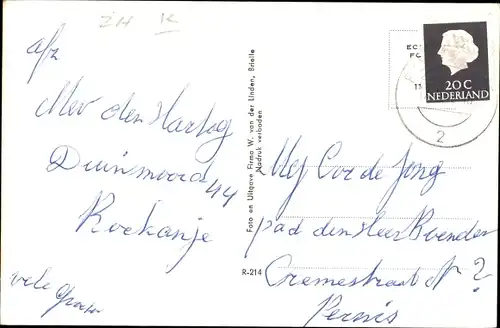 ZH K
afz
Mev den Hartog
Duinoord 44
Rockanje
vele groeten
Foto en Uitgave Firma W. van der Linden, Brielle
Nadruk verboden
R-214
EC
FO
11
20 C
NEDERLAND
2
Mej Cor de Jong
pad den Heer
Cremestraat N ?
Pernis